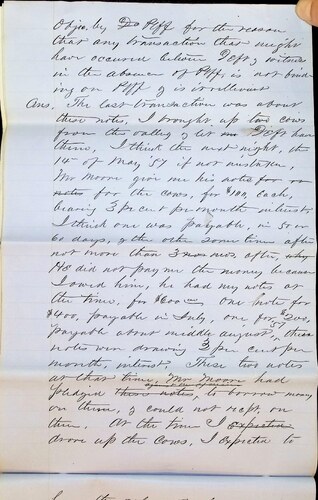 Objec. by Do Plff for the reason
that any transaction that might
have occured between Deft & witness
in the absence of Plff, is not bind-
ing on Plff & is irrelevant
Ans. The last transaction was about
these notes, I brought up two cows
from the valley & let Deft have
them, I think the next night, the
14th of May, 57 if not mistaken,
Mr Moore give me his notes for
for the cows, for $100, each,
bearing 3 pr cent pr month interest.
I think one was payable, in 50 or
60 days, & the other some time after
not more than 3 mos after, why
He did not pay me the money because
I owed him, he had my notes at
the time, for $600 — One note for
$400, payable in July, one for $200,
payable about middle august 57, these
notes were drawing 3 pr cent per
month, interest. These two notes
at that time, Mr Moore had
pledged these notes, to borrow money
on them, & could not rect, on
them. At the time I expected
drove up the cows, I expected to